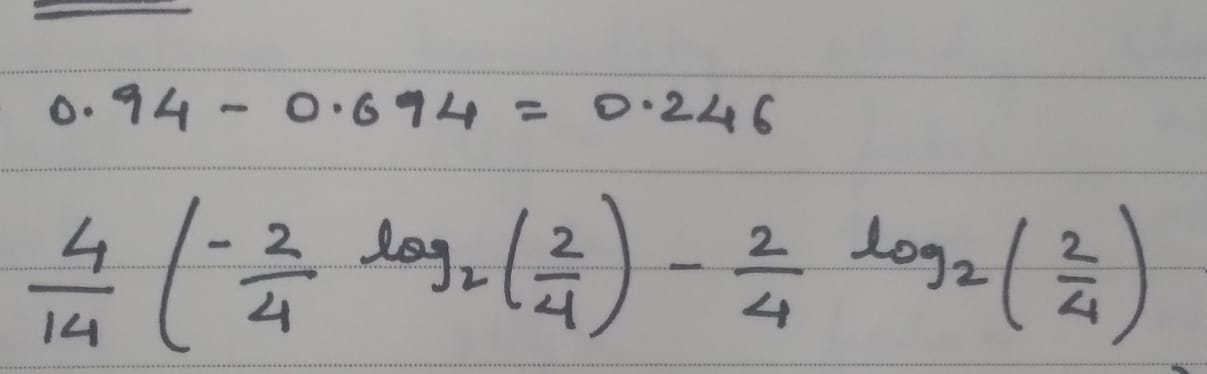 0.94 - 0.694 = 0.246
4/14 ( - 2/4 log₂ (2/4) - 2/4 log₂ (2/4)